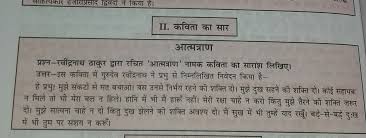 साहित्यकार हजारीप्रसाद द्विवेदी ने किया है।
II. कविता का सार
आत्मत्राण
प्रश्न–रवींद्रनाथ ठाकुर द्वारा रचित 'आत्मत्राण' नामक कविता का सारांश लिखिए।
उत्तर–इस कविता में गुरुदेव रवींद्रनाथ ने प्रभु से निम्नलिखित निवेदन किया है–
हे प्रभु! मुझे संकटों से मत बचाओ। बस उनसे निर्भय रहने की शक्ति दो। मुझे दुख सहने की शक्ति दो। कोई सहायक
न मिले तो भी मेरा बल न हिले। हानि में भी मैं हारूँ नहीं। मेरी रक्षा चाहे न करो किंतु मुझे तैरने की शक्ति जरूर
दो। मुझे सांत्वना चाहे न दो किंतु दुख झेलने की शक्ति अवश्य दो। मैं सुख में भी तुम्हें याद रखूँ। बड़े-से-बड़े दुःख
में भी तुम पर संशय न करूँ।